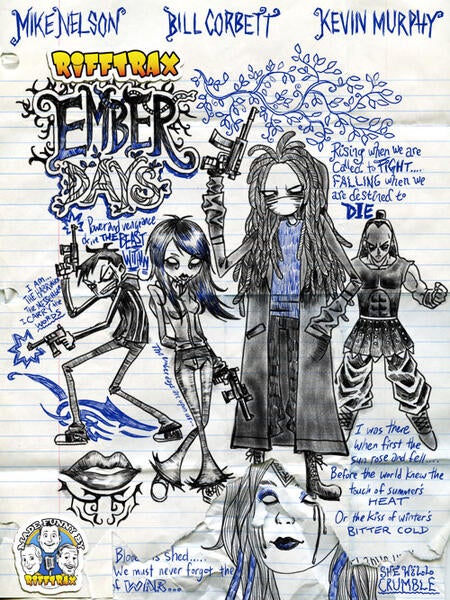 MIKE NELSON BILL CORBETT KEVIN MURPHY
RiFFTRAX
EMBER
DAYS
Rising when we are
called to FIGHT....
FALLING when we
are destined to
DIE
Power and vengeance
drive THE BEAST
WITHIN
I AM...
THE MESSENGER
I CARRY THE
WORDS
I was there
when first the
sun rose and fell....
Before the world knew the
touch of summer's
HEAT
Or the kiss of winter's
BITTER COLD
MADE FUNNY BY
RIFFTRAX
Blood is shed.....
We must never forget the
of WAR...
SHE WILL
CRUMBLE